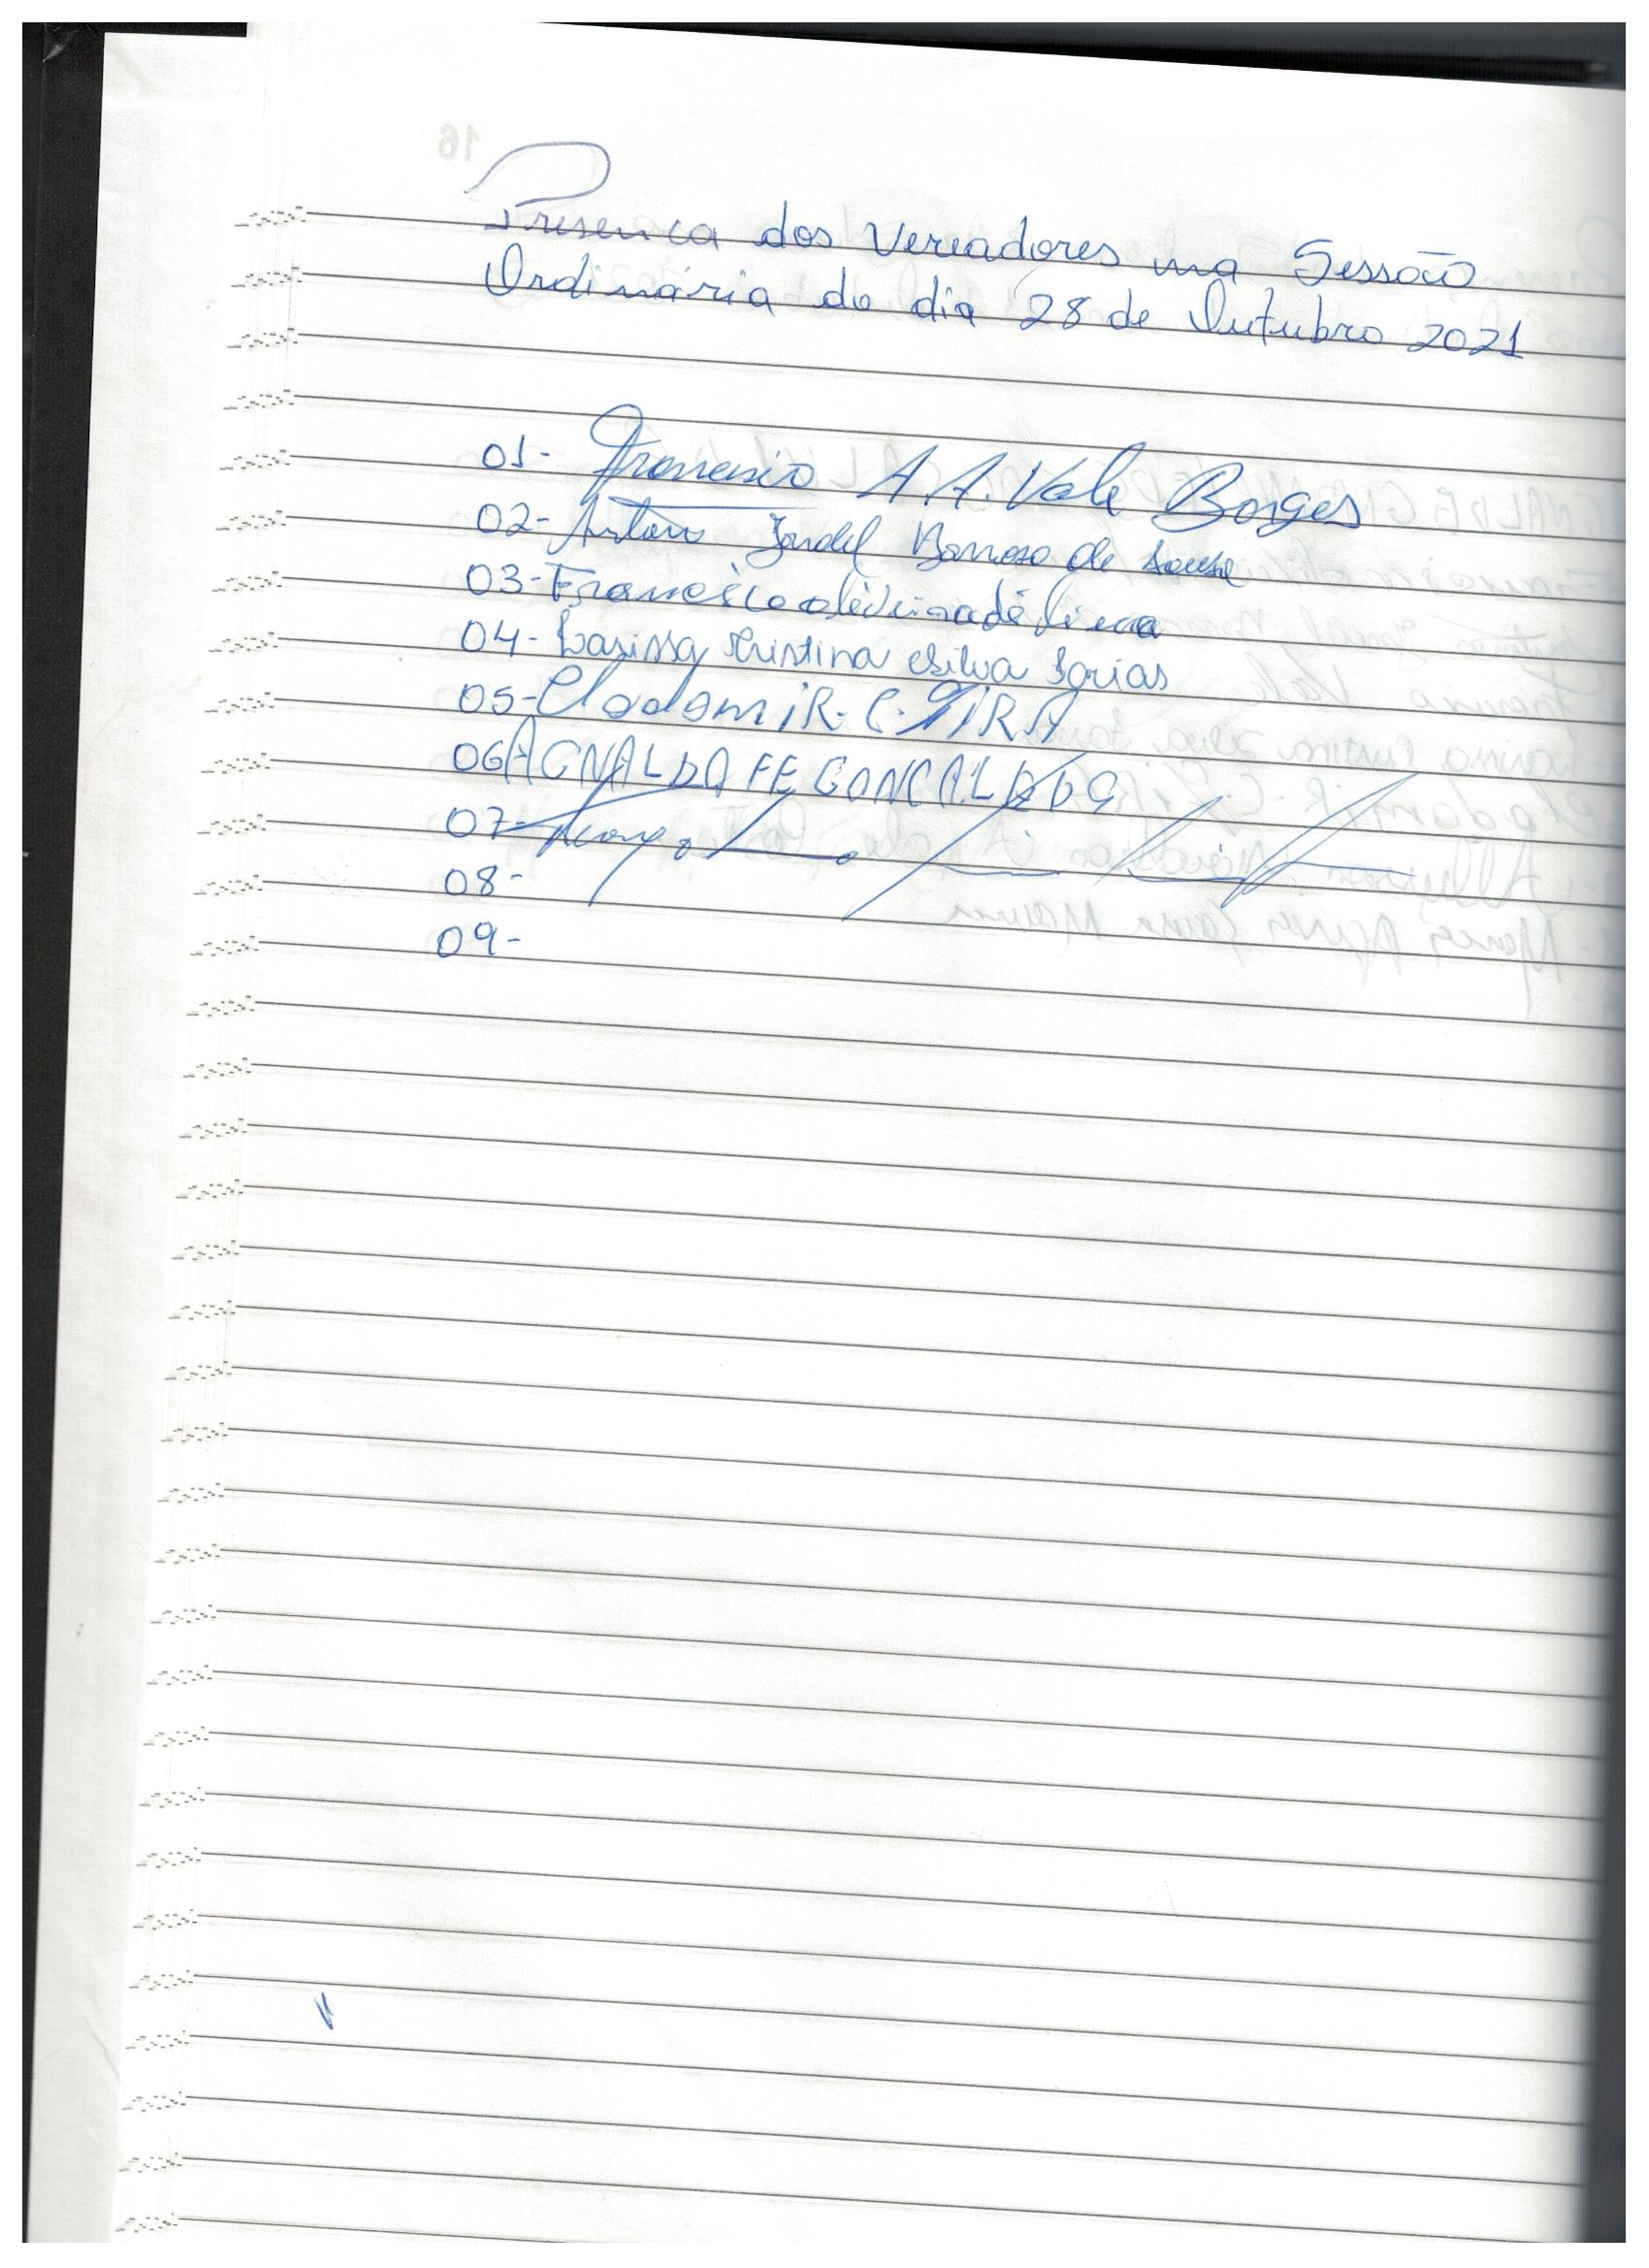 Presenca dos Vereadores na Sessão
Ordinária do dia 28 de Outubro 2021
01- Francisco A. A. Vale Borges
02- Antônio Jardel Barroso de Sousa
03- Francisco oliveira de lima
04- Larissa Kristina Silva Farias
05- Clodomir. C. LIRA
06 AGNALDA FE GONCAL
07-
08-
09-